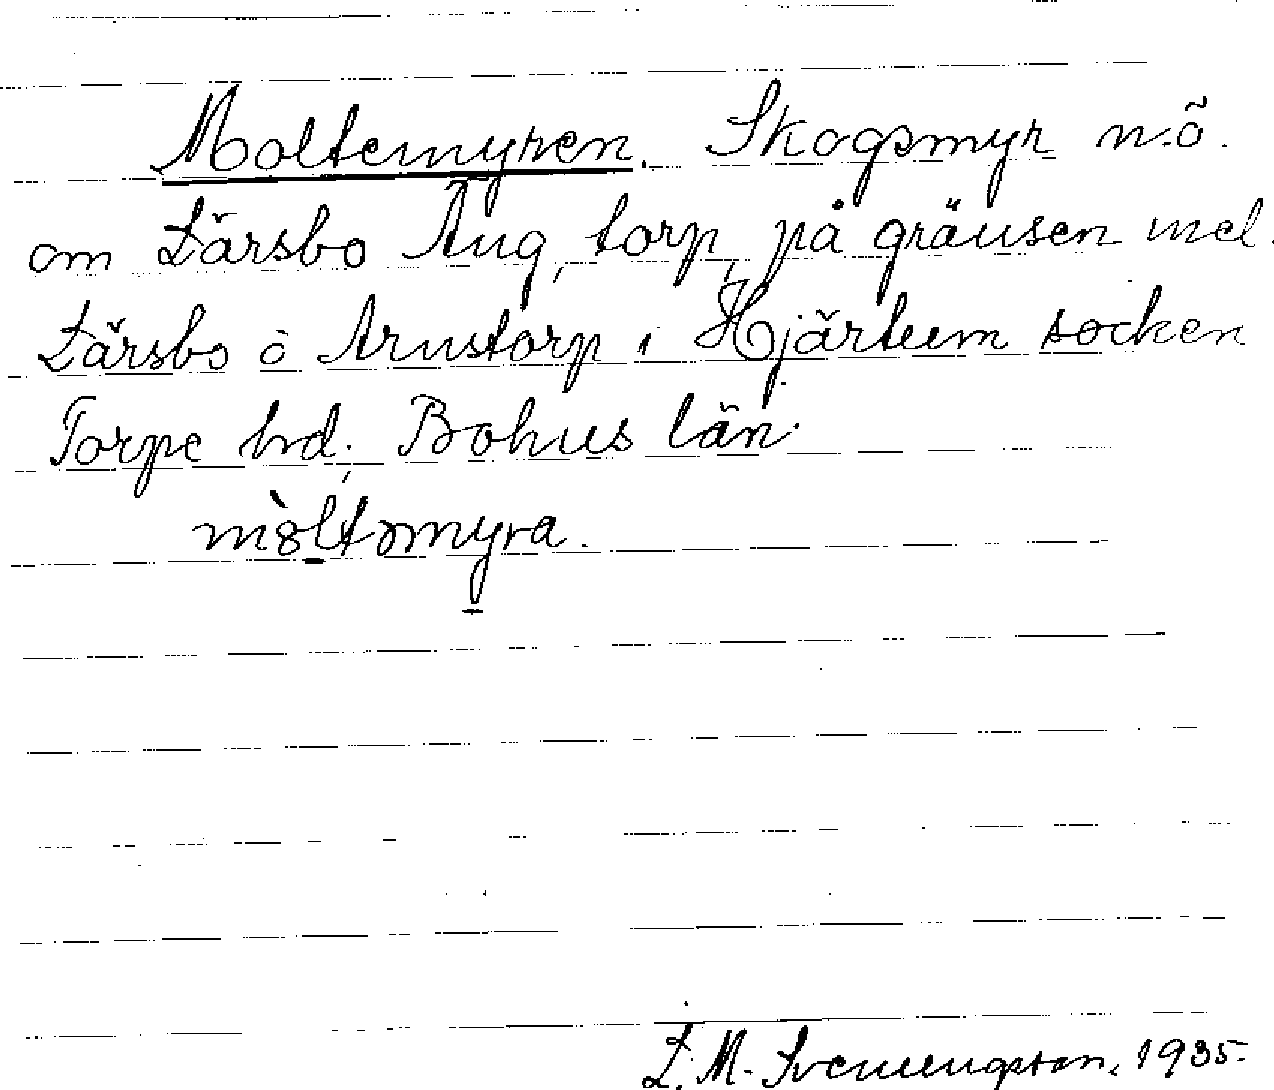 Moltemyren. Skogsmyr n.ö.
om Lärsbo Äng, torp, på gränsen mel.
Lärsbo o Arnstorp i Hjärtum socken
Torpe hd; Bohus län.
mòltəmyra.
L. M. Svenungsson, 1935.